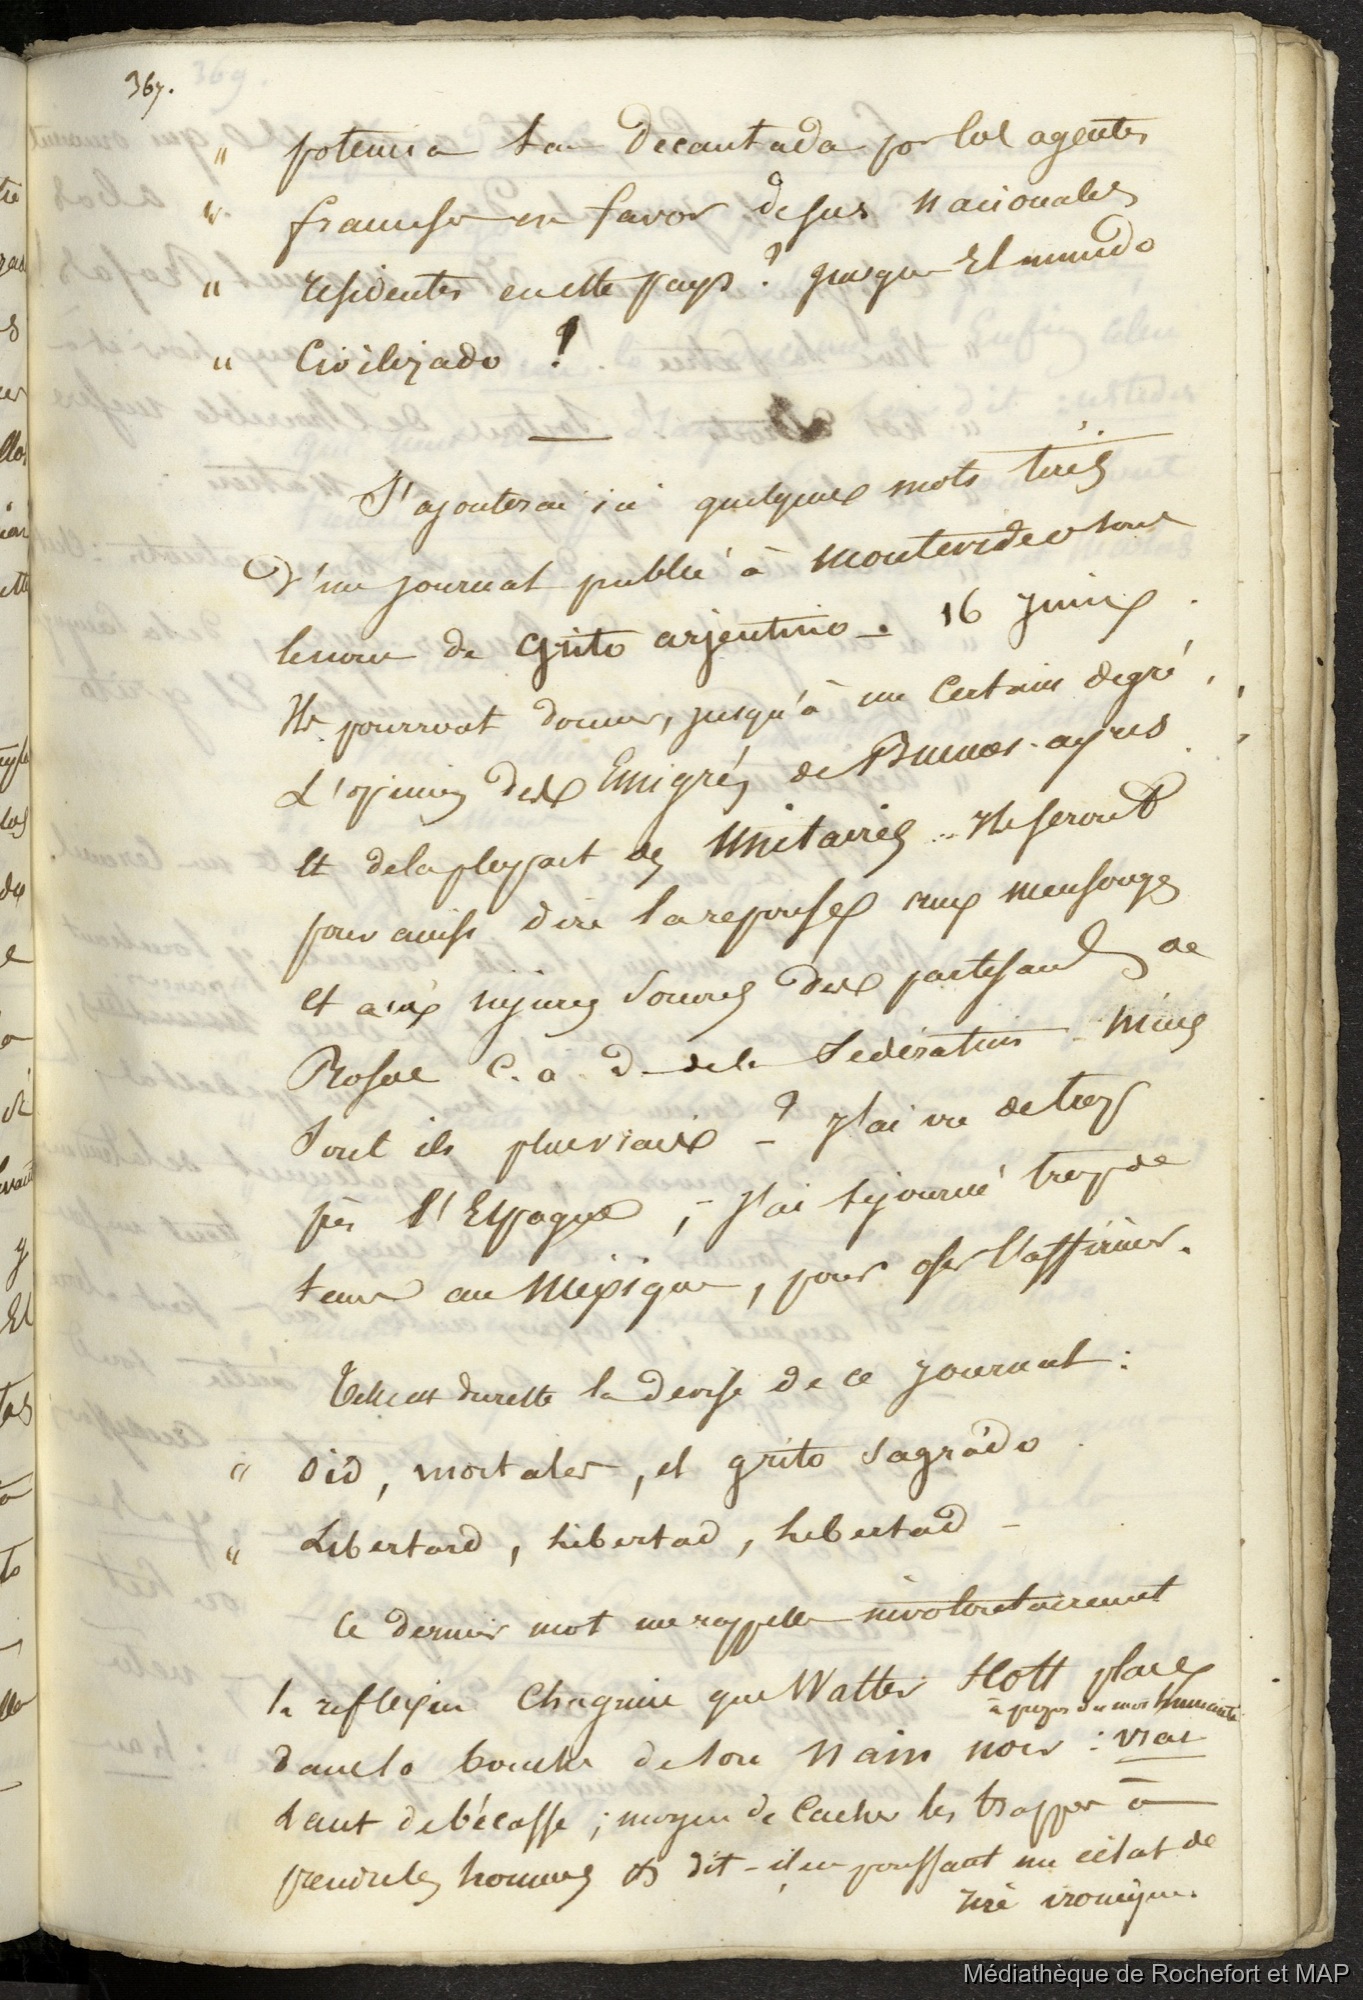 367. 369.
" potencia tan decantada por los agentes
" franceses en favor de sus nacionales
" residentes en este pays ? que que El mundo
" Civilizado !
J'ajouterai ici quelques mots tirés
d'un journal publié à Montevideo sous
le nom de Grito arjentino. 16 juin.
Ils pourront donner, jusqu'à un certain degré,
L'opinion des Emigrés de Buenos-ayres
et de la pluspart des Unitaires .. Ils seront
pour ainsi dire la reponse aux mensonges
et aux injures des partisans de
Rosas c. a. d. de la Fédération. Mais
sont ils plus vrais - ? J'ai vu de trop
près l'Espagne ; - j'ai séjourné trop de
tems au Mexique, pour oser l'affirmer.
Telle est du reste la devise de ce journal :
" Oid, mortales, el grito sagrádo
" Libertard, libertad, libertad -
Ce dernier mot me rappelle involontairement
la reflexion chagrine que Walter Scott place
à propos du mot humanité
dans la bouche de son Nain noir : vrai
Leurre de bécasse ; moyen de cacher les trappes à
prendre les hommes dit-il en poussant un éclat de
rire ironique.
Médiathèque de Rochefort et MAP